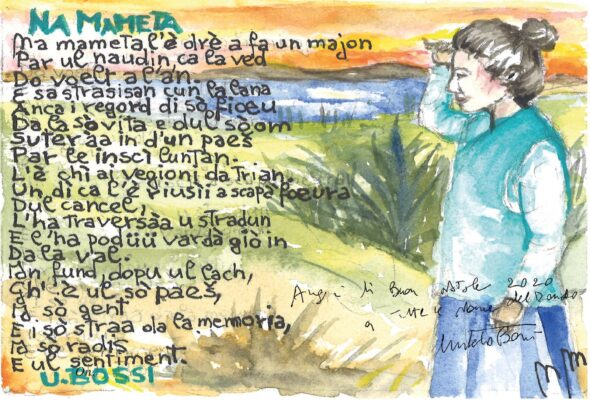 NA MAMETA
Ma mameta l'è drè a fa un majon
Par ul naudin, ca la ved
Do voelt a l'an.
E sa strasisan cun la lana
Anca i regord di sò fioeu
Da la sò vita e dul sò om
Suteràa in d'un paes
Par le inscì luntan.
L'è chì ai vegioni da Trian.
Un dì ca l'è riusìi a scapà foeura
Dul cancel,
L'ha traversàa u stradun
E l'ha podüü vardà giò in
Da la val.
Ian, fund, dopu ul lach,
Ghi è ul sò paes,
la sò gent
E i sò straa ola la memoria,
la sò radis
E ul sentiment.
U. BOSSI
On.
di Buon Natale 2020
a tutte le donne del mondo